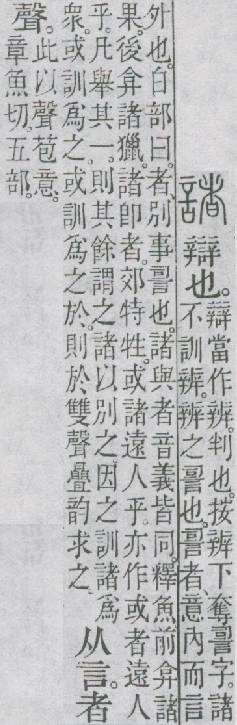 諸 辯也。
辯當作辨。判也。按辨下奪䛐字。諸
不訓辨。辨之䛐也。䛐者、意內而言
外也。白部曰。者、別事䛐也。諸與者音義皆同。釋魚前弇諸
果。後弇諸獵。諸卽者。郊特牲。或諸遠人乎。亦作或者遠人
乎。凡舉其一。則其餘謂之諸以別之。因之訓諸爲
衆。或訓爲之。或訓爲之於。則於雙聲疊韵求之。
从言。者
聲。
此以聲苞意。
章魚切。五部。